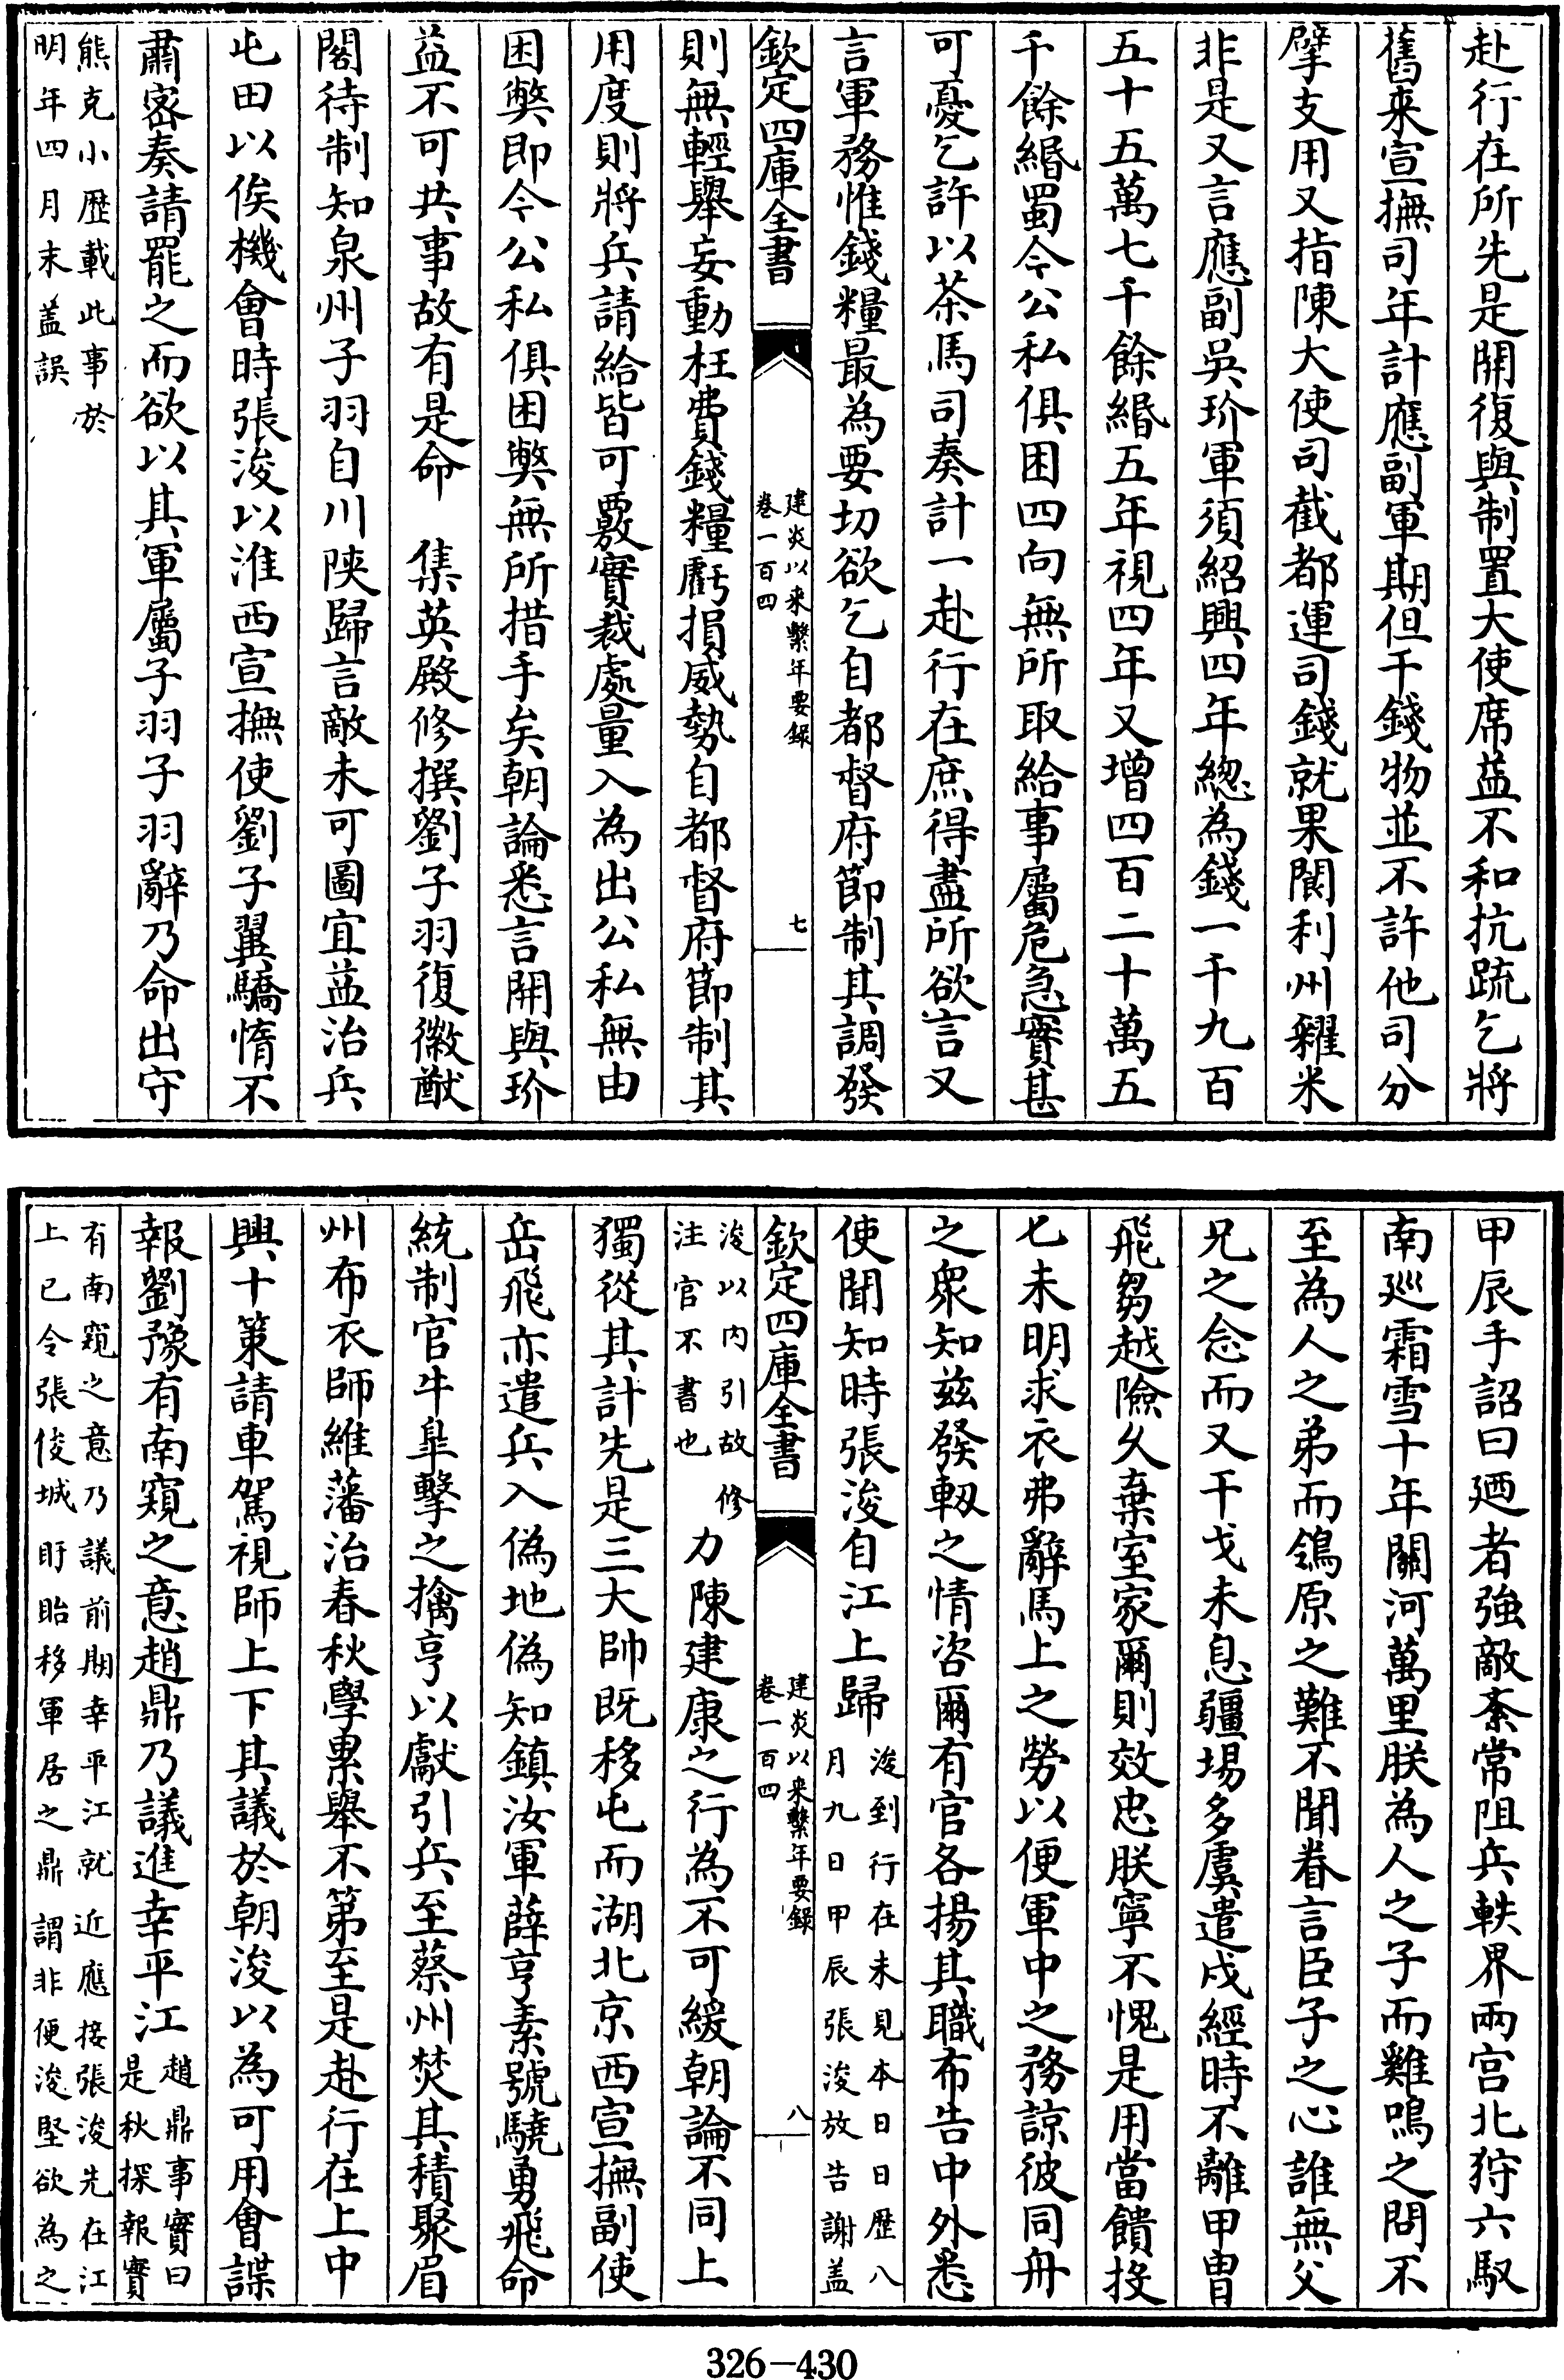 赴行在所先是開復與制置大使席益不和抗疏乞將
舊来宣撫司年計應副軍期但干錢物並不許他司分
擘支用又指陳大使司截都運司錢就果閬利州糴米
非是又言應副吳玠軍須紹興四年總為錢一千九百
五十五萬七千餘緡五年視四年又增四百二十萬五
千餘緡蜀今公私俱困四向無所取給事屬危急實甚
可憂乞許以茶馬司奏計一赴行在庶得盡所欲言又
言軍務惟錢糧最為要切欲乞自都督府節制其調發
欽定四庫全書
建炎以来繫年要録
卷一百四
七
則無輕舉妄動枉費錢糧虧損威勢自都督府節制其
用度則將兵請給皆可覈實裁處量入為出公私無由
困弊即今公私俱困弊無所措手矣朝論悉言開與玠
益不可共事故有是命　集英殿修撰劉子羽復徽猷
閣待制知泉州子羽自川陝歸言敵未可圖宜益治兵
屯田以俟機會時張浚以淮西宣撫使劉子翼驕惰不
肅密奏請罷之而欲以其軍屬子羽子羽辭乃命出守
熊克小歴載此事於
明年四月末蓋誤
甲辰手詔曰廼者強敵紊常阻兵軼界兩宫北狩六馭
南廵霜雪十年關河萬里朕為人之子而雞鳴之問不
至為人之弟而鴒原之難不聞眷言臣子之心誰無父
兄之念而又干戈未息疆埸多虞遣戍經時不離甲胄
飛芻越險久棄室家爾則效忠朕寧不愧是用當饋投
匕未明求衣弗辭馬上之勞以便軍中之務諒彼同舟
之衆知兹發軔之情咨爾有官各揚其職布告中外悉
使聞知時張浚自江上歸
浚到行在未見本日日歴八
月九日甲辰張浚放告謝盖
欽定四庫全書
建炎以来繫年要録
卷一百四
八
浚以内引故修
注官不書也
力陳建康之行為不可緩朝論不同上
獨從其計先是三大帥既移屯而湖北京西宣撫副使
岳飛亦遣兵入偽地偽知鎮汝軍薛亨素號驍勇飛命
統制官牛皐擊之擒亨以獻引兵至蔡州焚其積聚眉
州布衣師維藩治春秋學累舉不第至是赴行在上中
興十策請車駕視師上下其議於朝浚以為可用會諜
報劉豫有南窺之意趙鼎乃議進幸平江
趙鼎事實曰
是秋探報實
有南窺之意乃議前期幸平江就近應接張浚先在江
上已令張俊城盱眙移軍居之鼎謂非便浚堅欲為之
326-430